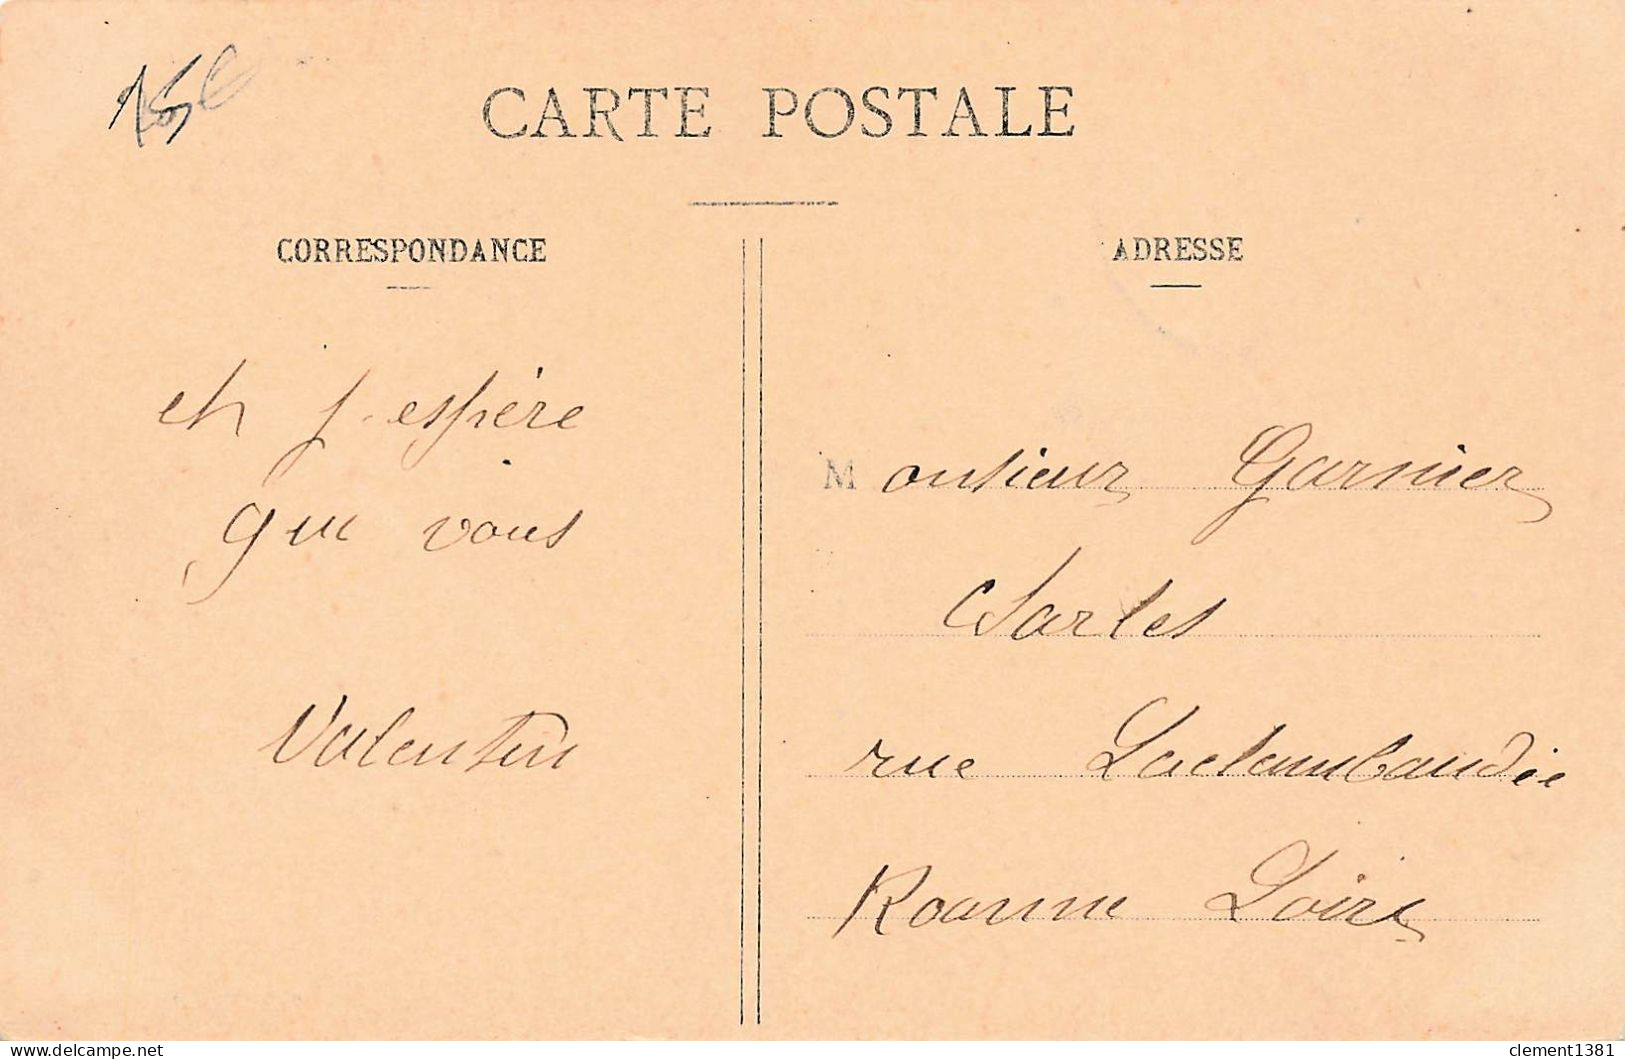 15€
CARTE POSTALE
CORRESPONDANCE
et j-espère
que vous
Valentin
ADRESSE
Monsieur Garnier
Charles
rue Laclambaudie
Roanne Loire
delcampe.net
clement1381